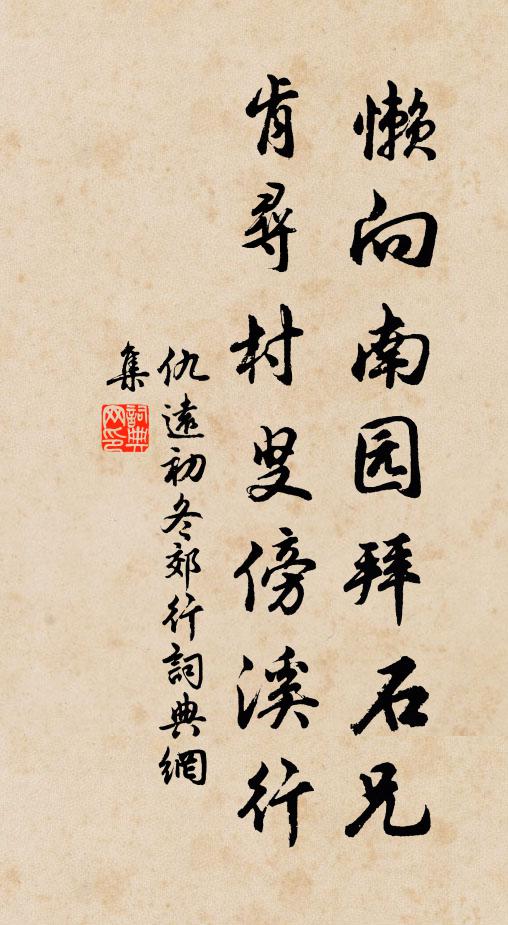 懒向南园拜石兄
肯尋村叟傍溪行
仇遠初冬郊行詞典網
集
詞典
网印